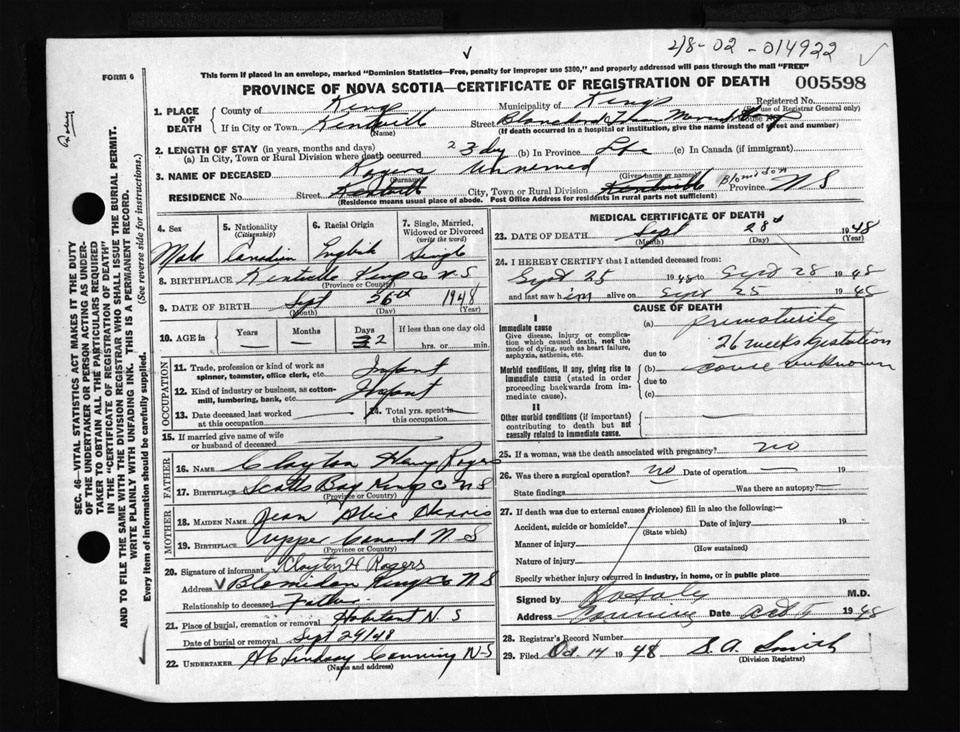 218-02-014922
FORM 6
This form if placed in an envelope, marked "Dominion Statistics—Free, penalty for improper use $300," and properly addressed will pass through the mail "FREE"
PROVINCE OF NOVA SCOTIA—CERTIFICATE OF REGISTRATION OF DEATH
005598
1. PLACE OF DEATH
County of Kings
Municipality of Kings
Registered No.
(For use of Registrar General only)
If in City or Town Kentville (Name)
Street
House No.
(If death occurred in a hospital or institution, give the name instead of street and number)
2. LENGTH OF STAY (in years, months and days)
(a) In City, Town or Rural Division where death occurred 3 dy (b) In Province Life (c) In Canada (if immigrant)
3. NAME OF DECEASED Rogers (Surname) Unnamed (Given name or names)
RESIDENCE No. Street Kentville City, Town or Rural Division Kentville Blomidon Province N S
(Residence means usual place of abode. Post Office Address for residents in rural parts not sufficient)
4. Sex Male
5. Nationality (Citizenship) Canadian
6. Racial Origin English
7. Single, Married, Widowed or Divorced (write the word) Single
8. BIRTHPLACE Kentville Kings Co N. S
(Province or County)
9. DATE OF BIRTH Sept 26th 1948
(Month) (Day) (Year)
10. AGE in Years Months Days 2 If less than one day old
hrs. or min.
OCCUPATION
11. Trade, profession or kind of work as spinner, teamster, office clerk, etc. Infant
12. Kind of industry or business, as cotton-mill, lumbering, bank, etc. Infant
13. Date deceased last worked at this occupation
14. Total yrs. spent in this occupation
15. If married give name of wife or husband of deceased
FATHER
16. NAME Clayton Henry Rogers
17. BIRTHPLACE Scotts Bay Kings Co N S
(Province or County)
MOTHER
18. MAIDEN NAME Jean
19. BIRTHPLACE Upper Canard N. S
(Province or County)
20. Signature of informant Clayton H Rogers
Address Blomidon Kings Co N S
Relationship to deceased Father
21. Place of burial, cremation or removal Habitant N. S
Date of burial or removal Sept 29/48
22. UNDERTAKER Lindsay Canning N-S
(Name and address)
MEDICAL CERTIFICATE OF DEATH
23. DATE OF DEATH Sept 28 1948
(Month) (Day) (Year)
24. I HEREBY CERTIFY that I attended deceased from:
Sept 25 1948 to Sept 28 1948
and last saw him alive on Sept 25 1948
CAUSE OF DEATH
I
Immediate cause
Give disease, injury or complication which caused death, not the mode of dying, such as heart failure, asphyxia, asthenia, etc.
(a) Prematurity
26 weeks gestation
due to
Morbid conditions, if any, giving rise to immediate cause (stated in order proceeding backwards from immediate cause).
(b) cause unknown
due to
(c)
II
Other morbid conditions (if important) contributing to death but not causally related to immediate cause.
25. If a woman, was the death associated with pregnancy? no
26. Was there a surgical operation? no Date of operation 19
State findings Was there an autopsy?
27. If death was due to external causes (violence) fill in also the following:-
Accident, suicide or homicide? Date of injury 19
(State which)
Manner of injury
(How sustained)
Nature of injury
Specify whether injury occurred in industry, in home, or in public place
Signed by M.D.
Address Canning Date Oct 1948
28. Registrar's Record Number
29. Filed Oct. 14 1948 S. A. Smith
(Division Registrar)
SEC. 46—VITAL STATISTICS ACT MAKES IT THE DUTY OF THE UNDERTAKER OR PERSON ACTING AS UNDERTAKER TO OBTAIN ALL THE PARTICULARS REQUIRED IN THE "CERTIFICATE OF REGISTRATION OF DEATH" AND TO FILE THE SAME WITH THE DIVISION REGISTRAR WHO SHALL ISSUE THE BURIAL PERMIT.
WRITE PLAINLY WITH UNFADING INK. THIS IS A PERMANENT RECORD.
Every item of information should be carefully supplied. (See reverse side for instructions.)